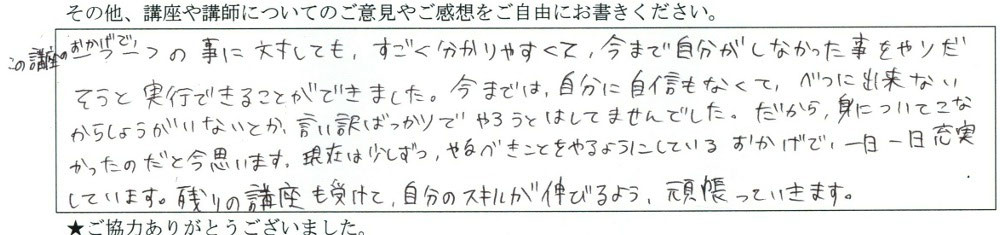 その他、講座や講師についてのご意見やご感想をご自由にお書きください。
この講座のおかげで!
一つ一つの事に対しても、すごく分かりやすくて、今まで自分がしなかった事をやりだ
そうと実行できることができました。今までは、自分に自信もなくて、べつに出来ない
からしょうがいないとか、言い訳ばっかりでやろうとはしてませんでした。だから、身についてこな
かったのだと今思います。現在は少しずつ、やるべきことをやるようにしているおかげで、一日一日充実
しています。残りの講座も受けて、自分のスキルが伸びるよう、頑帳っていきます。
★ご協力ありがとうございました。